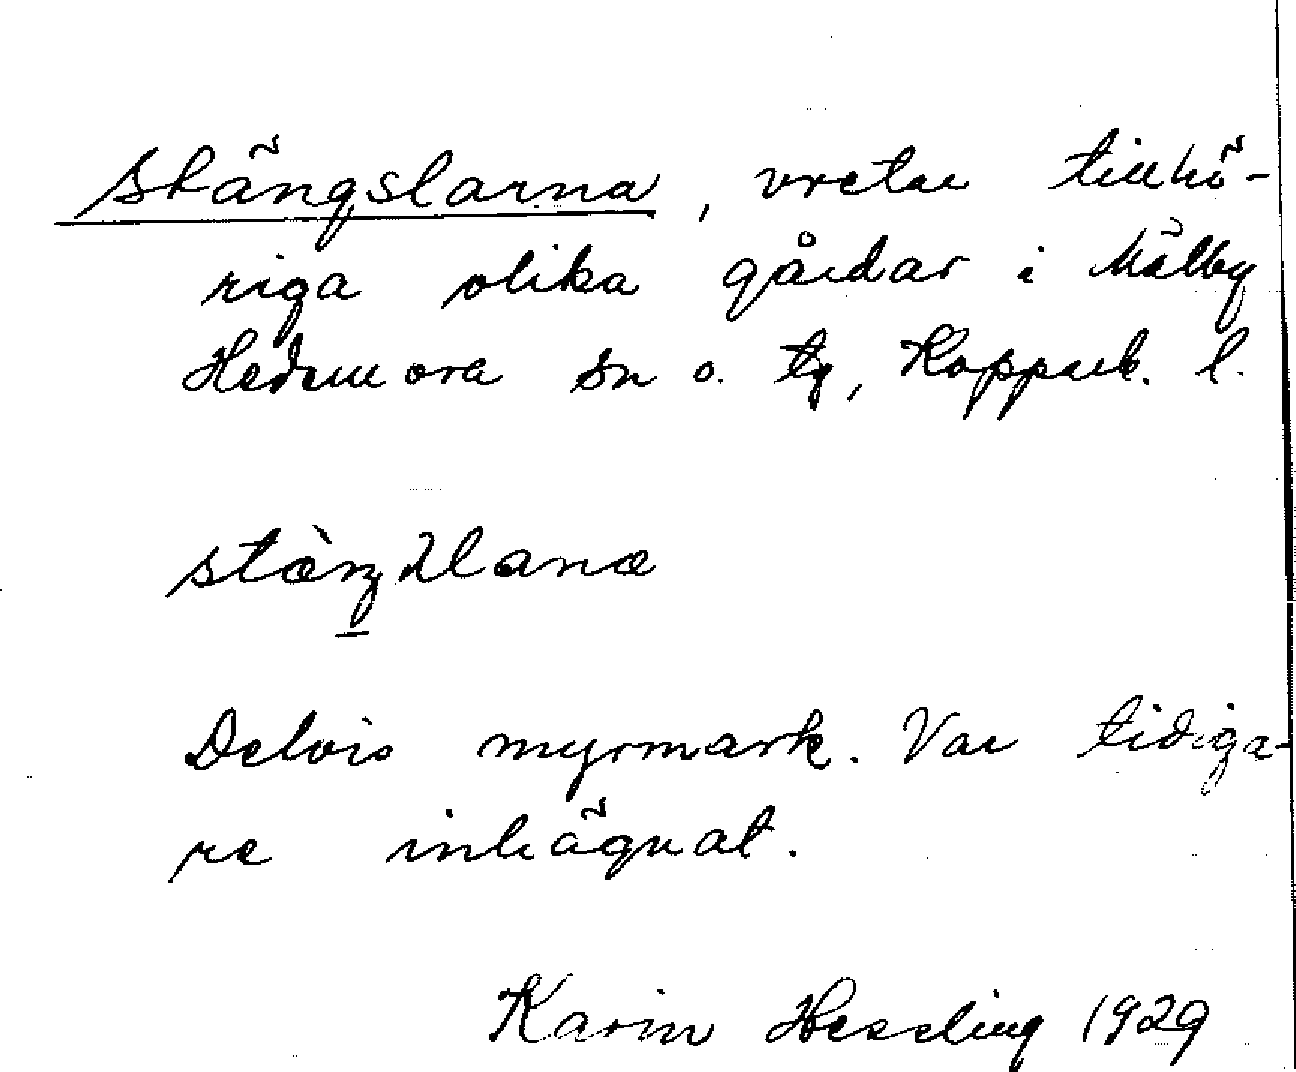 Stängslarna, vretar tillhö-
riga olika gårdar i Mälby
Hedemora sn o. tg, Kopparb. l.
Delvis myrmark. Var tidiga-
re inhägnat.
Karin Hessling 1929